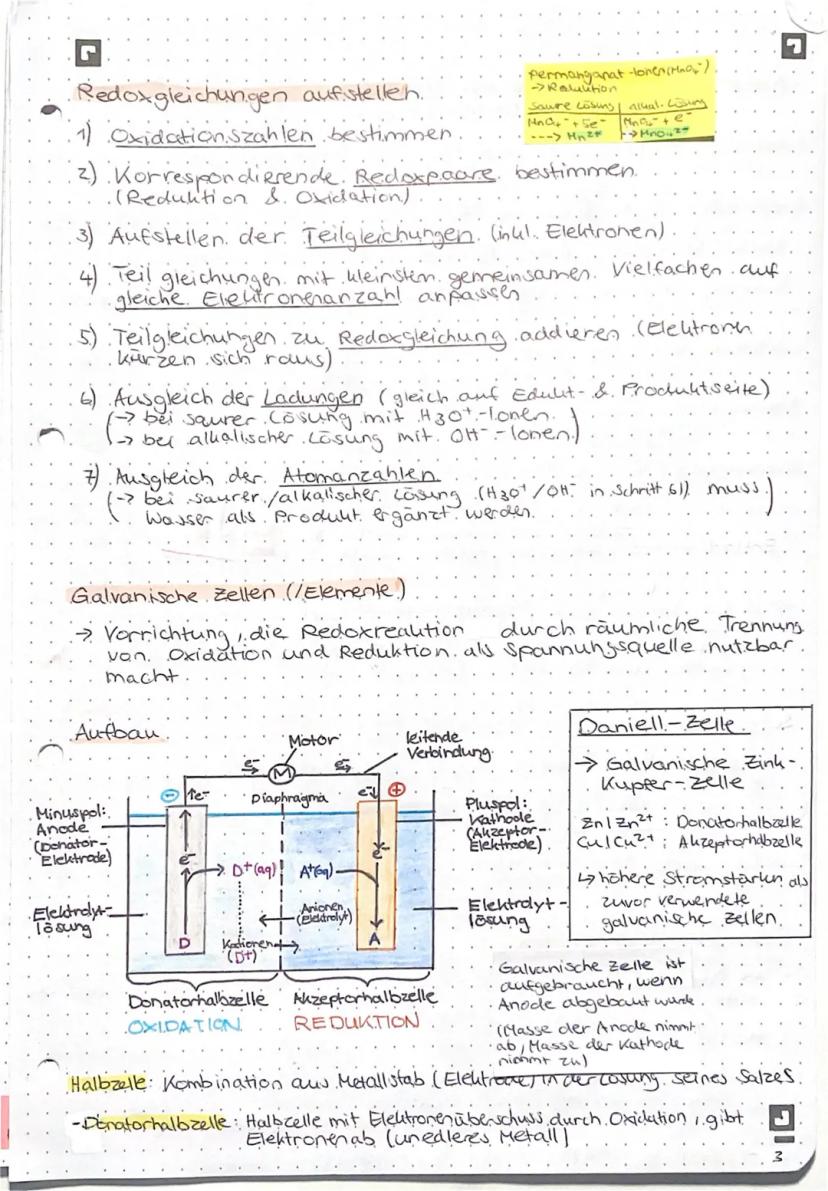 Redoxgleichungen aufstellen
Permanganat-Ionen (MnO₄⁻)
→ Reduktion
saure Lösung | alkal. Lösung
MnO₄⁻ + 5e⁻ | MnO₄⁻ + e⁻
---> Mn²⁺ | --> MnO₄²⁻
1) Oxidationszahlen bestimmen
2) Korrespondierende Redoxpaare bestimmen
(Reduktion & Oxidation)
3) Aufstellen der Teilgleichungen (inkl. Elektronen)
4) Teilgleichungen mit kleinsten gemeinsamen Vielfachen auf
gleiche Elektronenanzahl anpassen
5) Teilgleichungen zu Redoxgleichung addieren (Elektronen
kürzen sich raus)
6) Ausgleich der Ladungen (gleich auf Edukt- & Produktseite)
(→ bei saurer Lösung mit H3O⁺-Ionen
→ bei alkalischer Lösung mit OH⁻-Ionen)
7) Ausgleich der Atomanzahlen
(→ bei saurer/alkalischer Lösung (H3O⁺/OH⁻ in Schritt 6)) muss
Wasser als Produkt ergänzt werden)
Galvanische Zellen (/Elemente)
→ Vorrichtung, die Redoxreaktion durch räumliche Trennung
von Oxidation und Reduktion als Spannungsquelle nutzbar
macht
Aufbau
Motor
leitende
Verbindung
e⁻
M
e⁻
⊖
↑e⁻
Diaphragma
e⁻↓
⊕
Minuspol:
Anode
(Donator-
Elektrode)
Pluspol:
Kathode
(Akzeptor-
Elektrode)
e⁻
D⁺(aq)
A⁺(aq)
e⁻
Elektrolyt-
lösung
Anionen
(Elektrolyt)
Elektrolyt-
lösung
D
Kationen
(D⁺)
A
Donatorhalbzelle
OXIDATION
Akzeptorhalbzelle
REDUKTION
Daniell-Zelle
→ Galvanische Zink-
Kupfer-Zelle
Zn|Zn²⁺: Donatorhalbzelle
Cu|Cu²⁺: Akzeptorhalbzelle
↳ höhere Stromstärken als
zuvor verwendete
galvanische Zellen
Galvanische Zelle ist
aufgebraucht, wenn
Anode abgebaut wurde
(Masse der Anode nimmt
ab, Masse der Kathode
nimmt zu)
Halbzelle: Kombination aus Metallstab (Elektrode) in der Lösung seines Salzes
-Donatorhalbzelle: Halbzelle mit Elektronenüberschuss durch Oxidation, gibt
Elektronen ab (unedleres Metall)
3